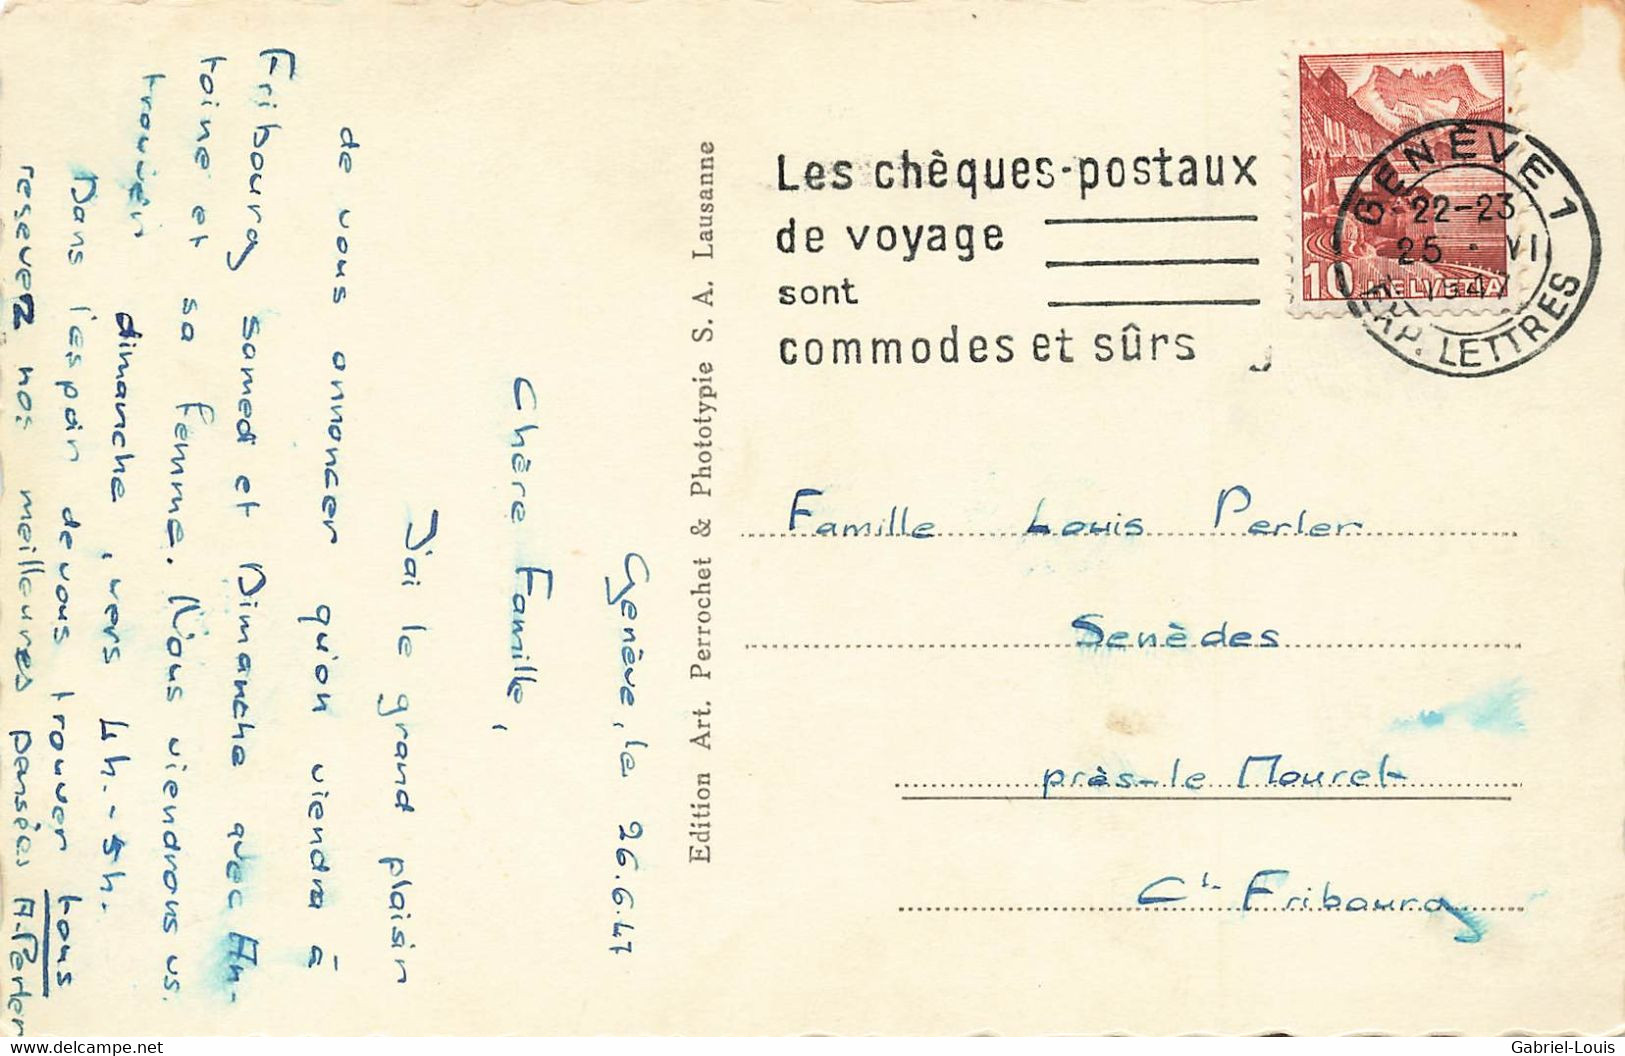 Genève, le 26.6.47
Chère Famille,
J'ai le grand plaisir
de vous annoncer qu'on viendra à
Fribourg Samedi et Dimanche avec An-
toine et sa femme. Nous viendrons vs.
trouver dimanche, vers 4h.-5h.
Dans l'espoir de vous trouver tous
resevez nos meilleures pensées A-Perler
Edition Art. Perrochet & Phototypie S. A. Lausanne
Les chèques-postaux
de voyage
sont
commodes et sûrs
10 HELVETIA
GENÈVE 1
22-23
25 VI
1947
EXP. LETTRES
Famille Louis Perler
Senèdes
près-le Mouret
Ct. Fribourg
www.delcampe.net
Gabriel-Louis